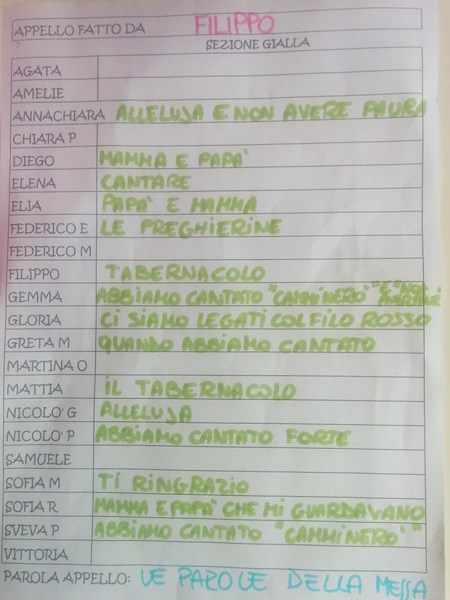 APPELLO FATTO DA FILIPPO
SEZIONE GIALLA
AGATA
AMELIE
ANNACHIARA ALLELUJA E NON AVERE PAURA
CHIARA P
DIEGO MAMMA E PAPA'
ELENA CANTARE
ELIA PAPA' E MAMMA
FEDERICO E LE PREGHIERINE
FEDERICO M
FILIPPO TABERNACOLO
GEMMA ABBIAMO CANTATO "CAMMINERO'" E "NON
GLORIA CI SIAMO LEGATI COL FILO ROSSO
GRETA M QUANDO ABBIAMO CANTATO
MARTINA O
MATTIA IL TABERNACOLO
NICOLO' G ALLELUJA
NICOLO' P ABBIAMO CANTATO FORTE
SAMUELE
SOFIA M TI RINGRAZIO
SOFIA R MAMMA E PAPA' CHE MI GUARDAVANO
SVEVA P ABBIAMO CANTATO "CAMMINERO'"
VITTORIA
PAROLA APPELLO: LE PAROLE DELLA MESSA